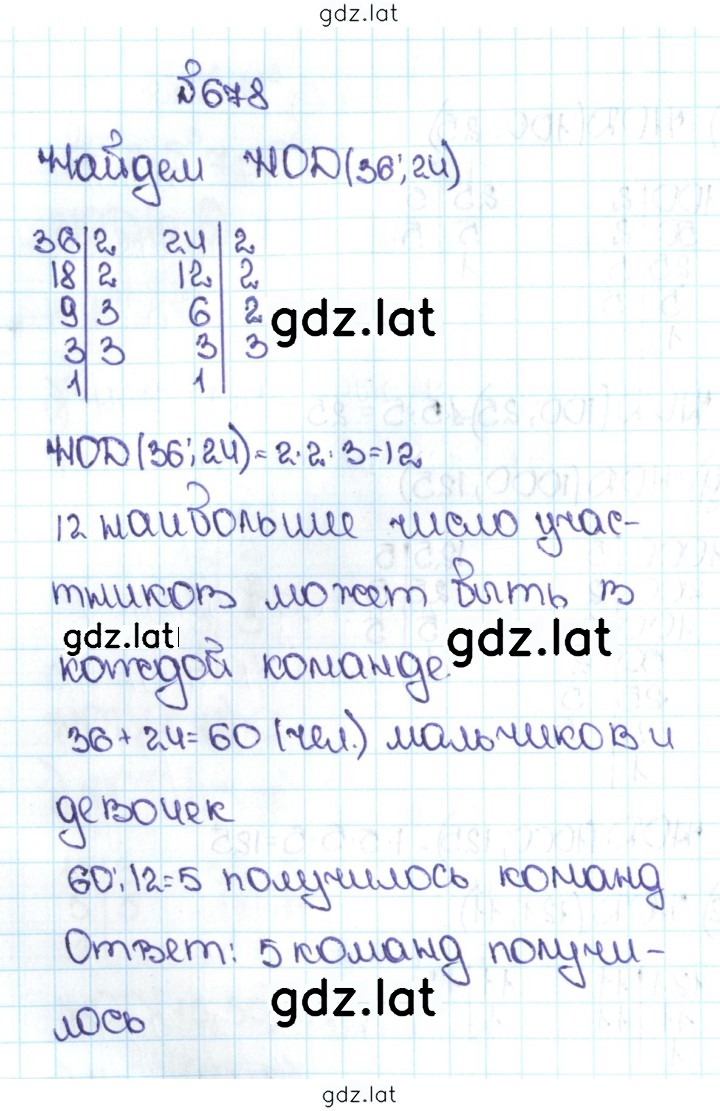 gdz.lat
№678
Найдем НОД(36; 24)
36 | 2 24 | 2
18 | 2 12 | 2
9 | 3 6 | 2
gdz.lat
3 | 3 3 | 3
1 | 1 |
НОД(36; 24) = 2·2·3=12
12 наибольшие число учас-
тников может быть в
gdz.lat gdz.lat
кождой команде.
36+24=60 (чел.) мальчиков и
девочек
60:12=5 получилось команд
Ответ: 5 команд получи-
gdz.lat
лось
gdz.lat